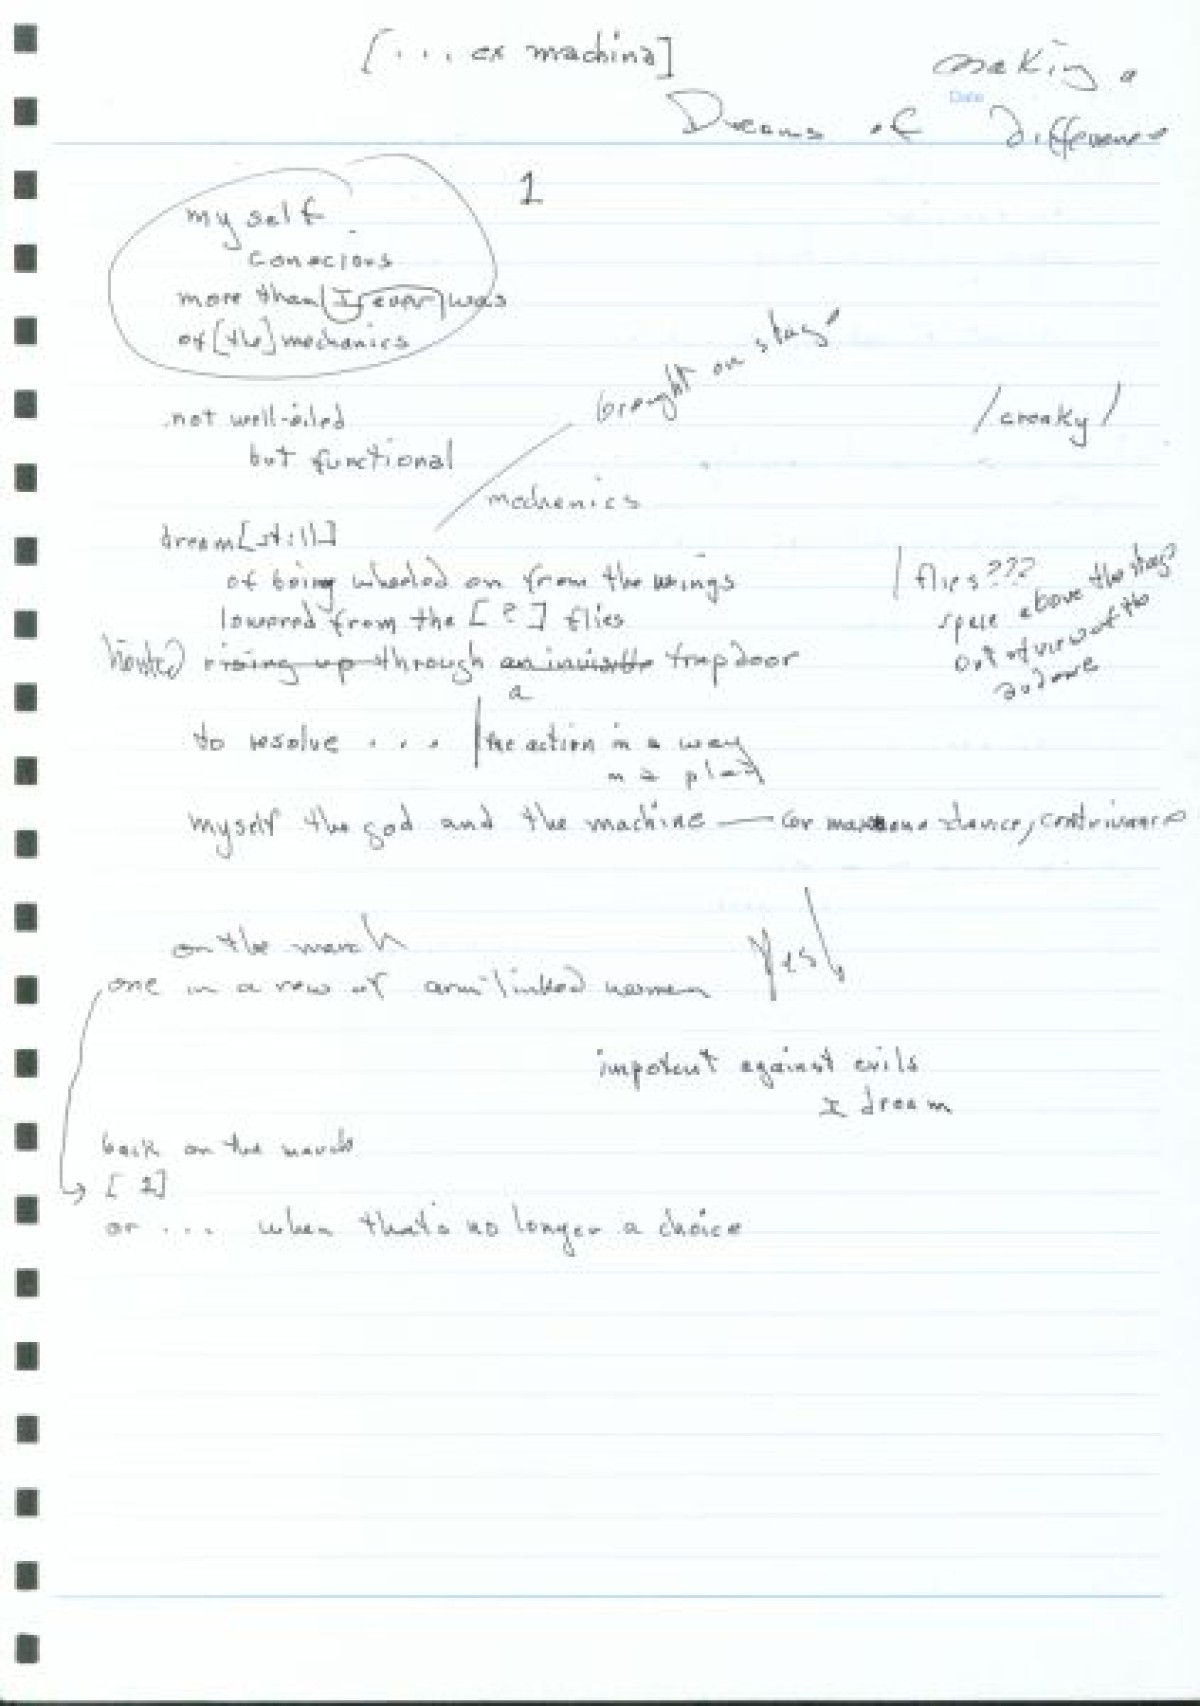 [... ex machina]
making a
Date
Dreams of difference
1
myself
conscious
more than I ever was
of [the] mechanics
brought on stage
not well-oiled
/creaky/
but functional
mechanics
dream [still]
of being wheeled on from the wings
lowered from the [?] flies
flies???
space above the stage
out of view of the
audience
rising up through an invisible trapdoor
a
to resolve ... | the action in a way
in a play
myself the god and the machine — or device, contrivance
on the march
one in a row of arm-linked women
Yes!
impotent against evils
I dream
back on the march
[2]
or ... when that's no longer a choice